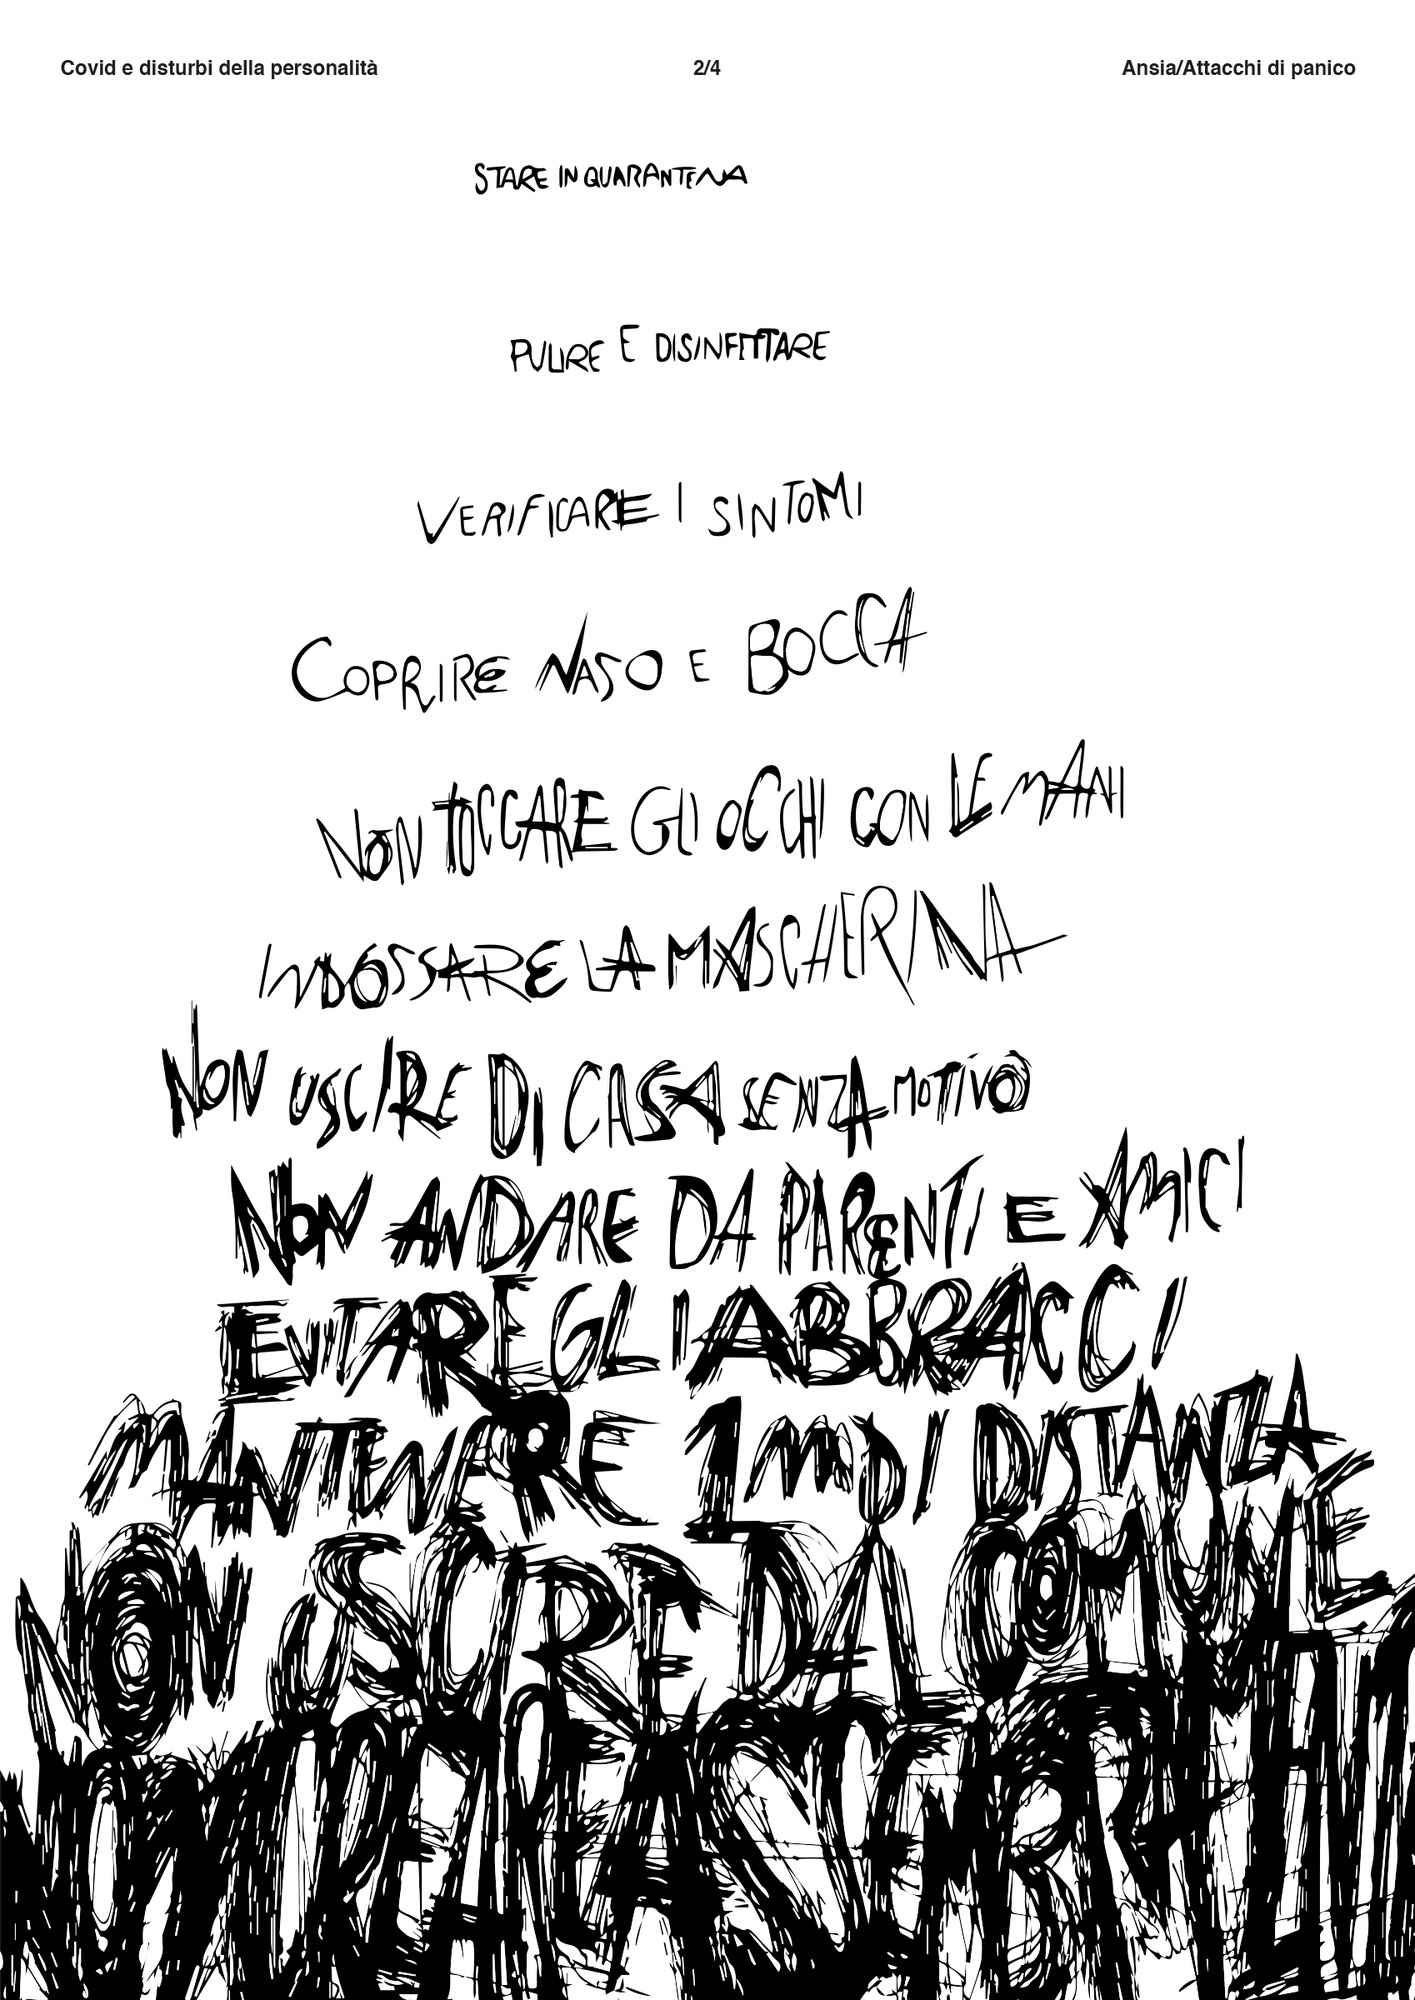 Covid e disturbi della personalità 2/4 Ansia/Attacchi di panico
STARE IN QUARANTENA
PULIRE E DISINFETTARE
VERIFICARE I SINTOMI
COPRIRE NASO E BOCCA
NON TOCCARE GLI OCCHI CON LE MANI
INDOSSARE LA MASCHERINA
NON USCIRE DI CASA SENZA MOTIVO
NON ANDARE DA PARENTI E AMICI
EVITARE GLI ABBRACCI
MANTENERE 1 M DI DISTANZA
NON USCIRE DAL COMUNE
NON CREARE ASSEMBRAMENTI